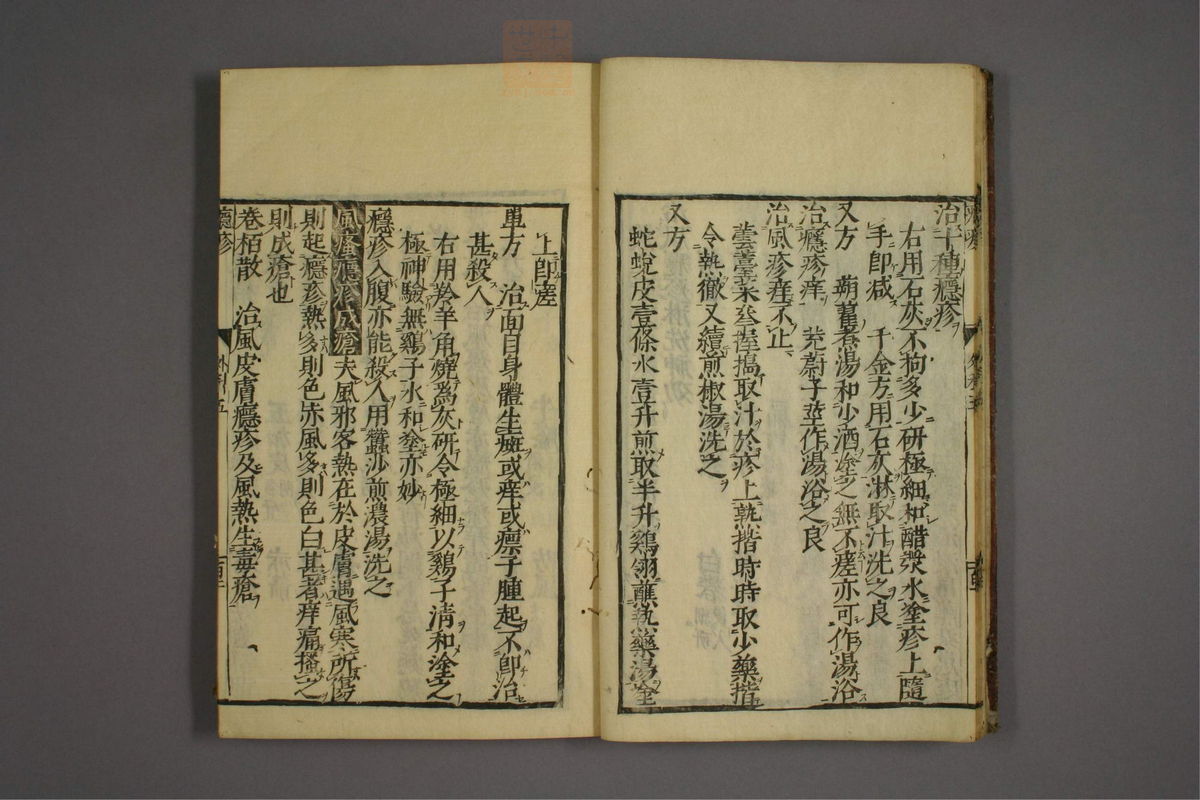 治十種癮疹
右用石灰不狗多少研極細和醋漿水塗疹上隨
手卽减　千金方用石灰淋取汁洗之良
又方　蒴藋煮湯和少酒塗之無不瘥亦可作湯浴
治癮疹痒　茺蔚子莖作湯浴之良
治風疹痒不止
取汁於疹上熱揩時時取少藥揩
令熱徹又續煎椒湯洗之
又方
蛇蛻皮壹條水壹升煎取半升鷄翎蘸熱藥湯塗
上卽瘥
單方　治面目身體生瘢或痒或瘭子腫起不卽治
甚殺人
右用羚羊角燒爲灰研令極細以鷄子清和塗之
極神驗無鷄子水和塗亦妙
癮疹入腹亦能殺人用蠶沙煎濃湯洗之
風瘙癮疹成瘡夫風邪客熱在於皮膚遇風寒所傷
則起癮疹熱多則色赤風多則色白甚者痒痛搔之
則成瘡也
卷栢散　治風皮膚癮疹及風熱生毒瘡
癮疹